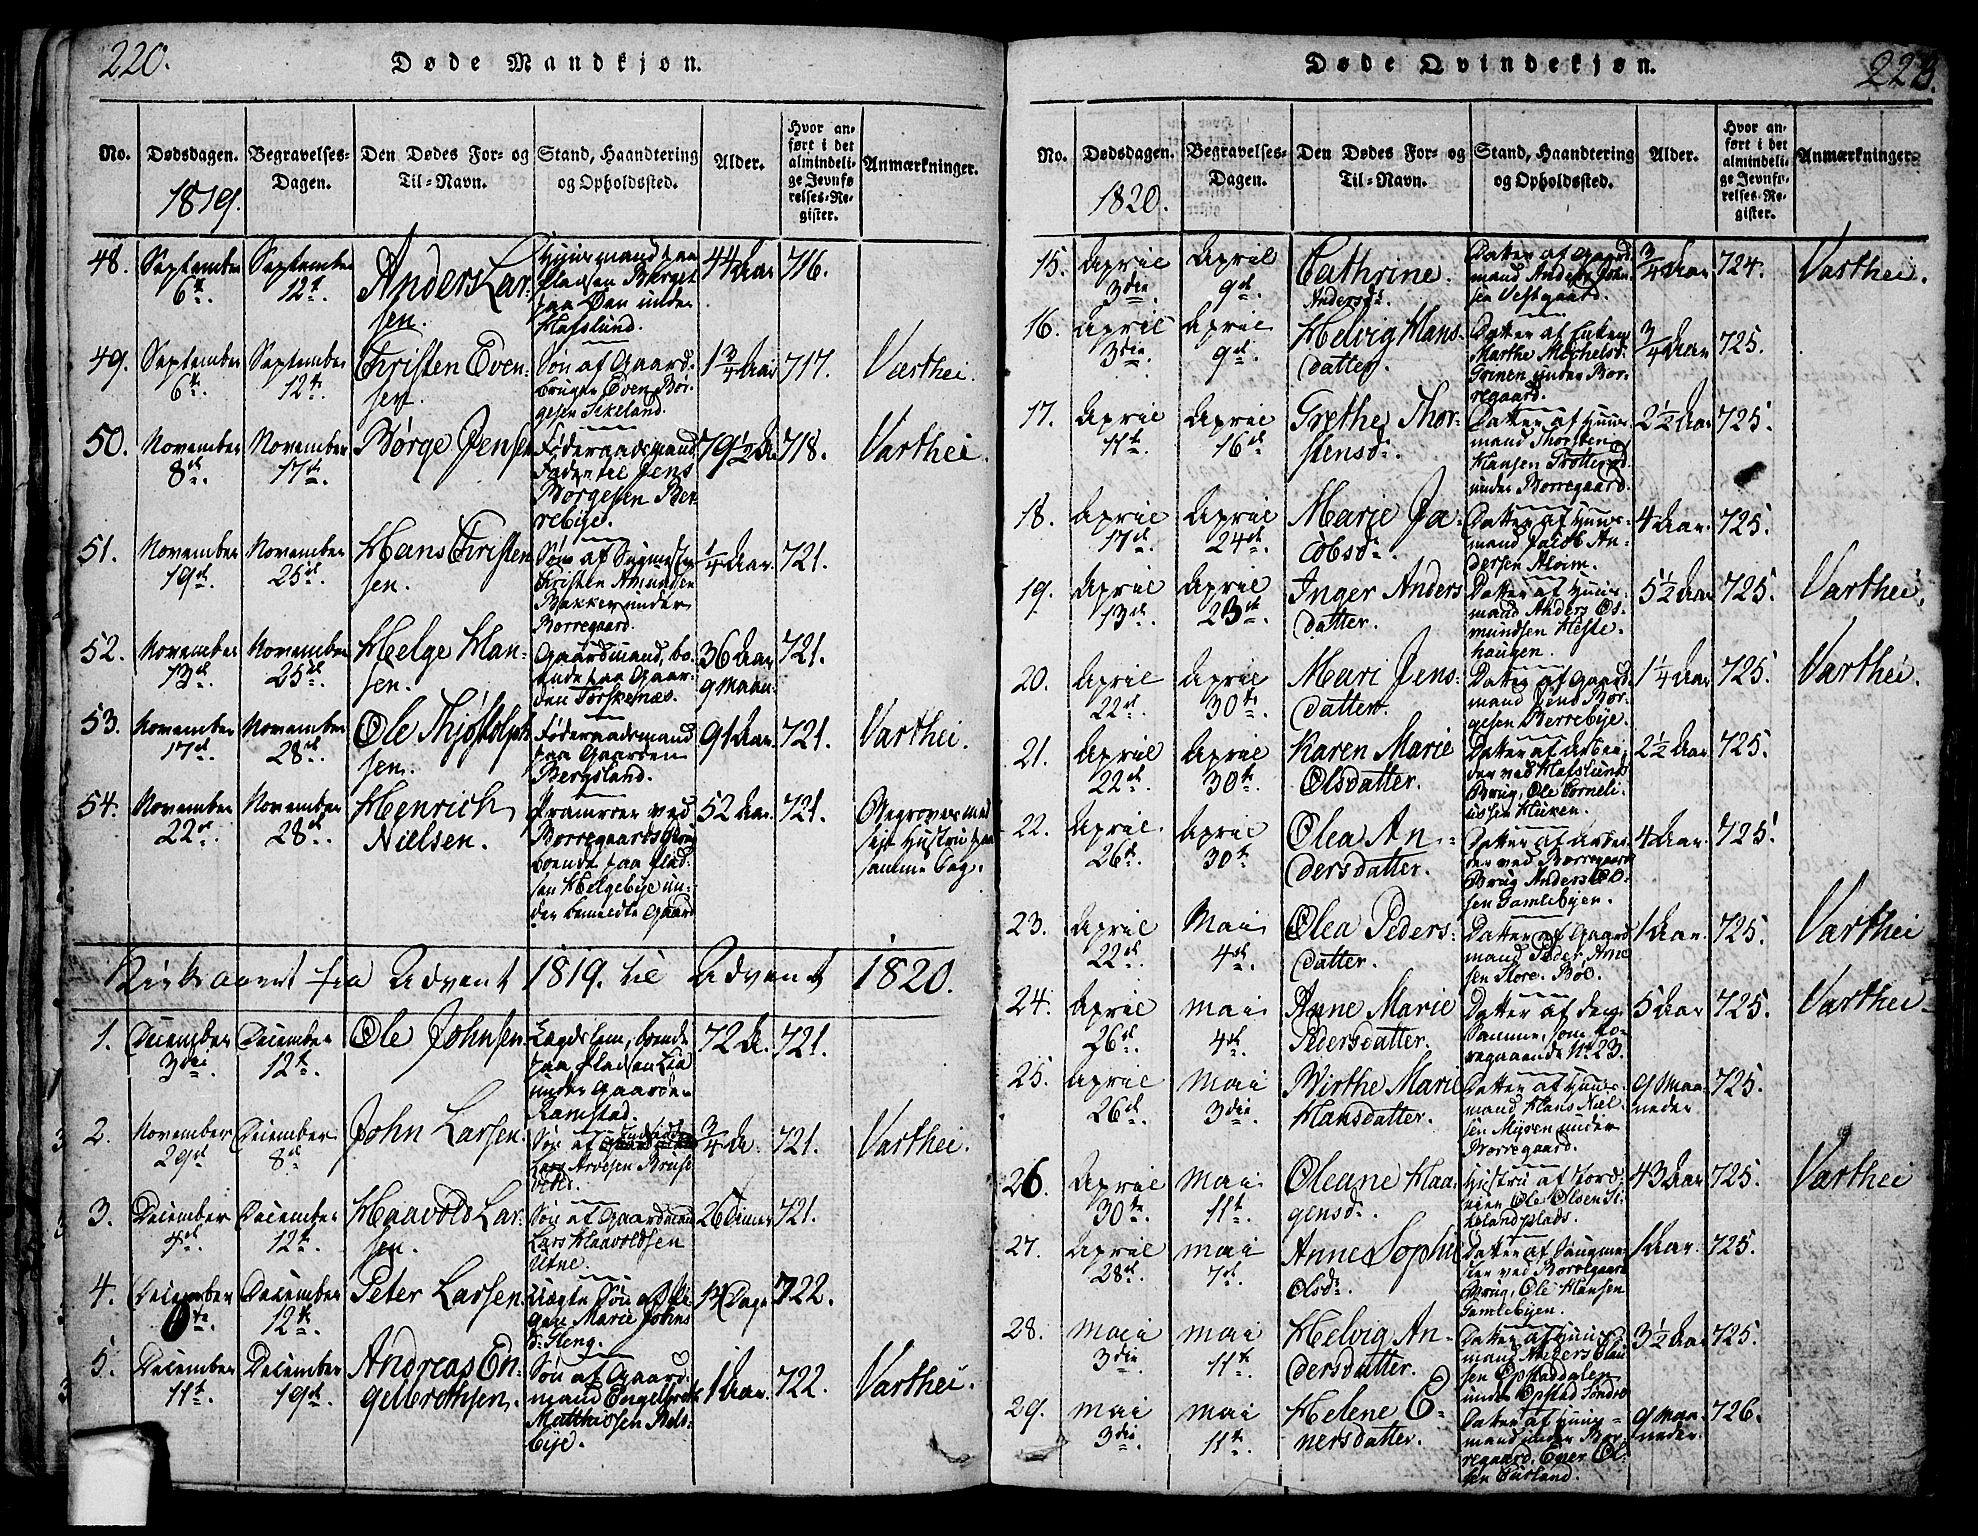 220.
Døde Mandkjøn.
No.
Dødsdagen.
1819.
Begravelses-
Dagen.
Den Dødes For- og
Til-Navn.
Stand, Haandtering
og Opholdssted.
Alder.
Hvor an-
ført i det
almindeli-
ge Jevnfø-
relses-Re-
gister.
Anmærkninger.
48.
September
6te.
September
12te.
Anders Lar-
sen.
Huusmand paa
Pladsen Berget
paa Øen under
Hafslund.
44 Aar
716.
49.
September
6te.
September
12te.
Christen Even-
sen.
Søn af Gaard-
bruger Even Bør-
gesen
1 3/4 Aar
717.
Varthei.
50.
November
8de.
November
17te.
Børge Jensen
Føderaadsmand
Fader til Jens
Børgesen Ber-
rebye.
79 1/2 Aar
718.
Varthei.
51.
November
19de.
November
25de.
Hans Christen
sen.
Søn af
Christen Amundsen
Bakker under
Borregaard.
1/4 Aar.
721.
52.
November
13de.
November
25de.
Helge Han-
sen.
Gaardmand, bo-
ende paa Gaar-
den Torskenæs.
36 Aar
9 Maan.
721.
53.
November
17de.
November
28de.
Ole Thjøstolph
sen.
Føderaadsmand
paa Gaarden
Bergsland.
91 Aar.
721.
Varthei.
54.
November
22de.
November
28de.
Henrich
Nielsen.
ved
Borregaards
boende paa Plad-
sen Helgebye un-
der bemeldte Gaard
52 Aar.
721.
Begraven med
sin Hustru paa
samme Dag.
Kirkeaaret fra Advent 1819. til Advent 1820.
1.
December
3die.
December
12te.
Ole Johnsen
Lægdslem, boende
paa Pladsen Lia
under Gaarden
Ramstad.
72 A.
721.
2.
November
29de
December
8de.
John Larsen.
Søn af
Lars Arvesen
3/4 A.
721.
Varthei.
3.
December
4de.
December
12te.
Haavold Lar-
sen.
Søn af Gaardmand
Lars Haavoldsen
Utne.
26 Timer
721.
4.
December
6te.
December
12te.
Peter Larsen.
Uægte Søn af Pi-
gen Marie Johns
d. Steng.
14 Dage
722.
5.
December
11te.
December
19de.
Andreas En-
gelbrethsen.
Søn af Gaard-
mand Engelbreth
Matthissen
bye.
1 Aar.
722.
Varthei.
Døde Qvindekjøn.
223.
No.
Dødsdagen.
1820.
Begravelses-
Dagen.
Den Dødes For- og
Til-Navn.
Stand, Haandtering
og Opholdssted.
Alder.
Hvor an-
ført i det
almindeli-
ge Jevnfø-
relses-Re-
gister.
Anmærkninger.
15.
April
3die.
April
9de.
Cathrine
Andersd.
Datter af Gaard-
mand Anders John-
sen Vestgaard.
3/4 Aar
724.
Varthei.
16.
April
3die.
April
9de.
Helvig Hans-
datter.
Datter af Enken
Marthe Michelsd.
Grenen under Bor-
regaard.
3/4 Aar
725.
17.
April
11te.
April
16de.
Grethe Thor-
stensd.
Datter af Huus-
mand Thorsten
Hansen
under Borregaard.
2 1/2 Aar
725.
18.
April
17de.
April
24de.
Marie Ja-
cobsd.
Datter af Huus-
mand Jacob An-
dersen Aloim.
4 Aar.
725.
19.
April
13de.
April
23de.
Inger Anders
datter.
Datter af Huus-
mand Anders As-
mundsen Heste-
haugen.
5 1/2 Aar
725.
Varthei.
20.
April
22de.
April
30te.
Mari Jens-
datter.
Datter af Gaard-
mand Jens Bør-
gesen Berrebye.
1 1/4 Aar
725.
Varthei.
21.
April
22de.
April
30te.
Karen Marie
Olsdatter.
Datter af Arbei-
der ved Hafslunds
Brug, Ole Corneli-
ussen
2 1/2 Aar
725.
22.
April
26de.
April
30te.
Olea An-
dersdatter.
Datter af Arbei-
der ved Borregaards
Brug Anders Ol-
sen Gamlebyen.
4 Aar.
725.
23.
April
22de.
Mai
4de.
Olea Peders-
datter.
Datter af Gaard
mand Peder Arne
sen Store-Bøe.
1 Aar.
725.
Varthei
24.
April
26de.
Mai
4de.
Anne Marie
Pedersdatter.
Datter af den
Samme, som fo-
regaaende No 23.
5 Aar
725.
Varthei
25.
April
26de.
Mai
3die.
Birthe Marie
Hansdatter.
Datter af Huus-
mand Hans Niel-
sen Myren under
Borregaard.
9 Maa-
neder
725.
26.
April
30te.
Mai
11te.
Oleane Haa-
gensd.
Hustru af
Ole Olsen
plads.
43 Aar
725.
Varthei
27.
April
28de.
Mai
7de.
Anne Sophie
Olsd.
Datter af Saugme-
ster ved Borregaards
Brug, Ole Hansen
Gamlebyen.
1 Aar.
725.
28.
Mai
3die.
Mai
11te.
Helvig An-
dersdatter.
Datter af Huus-
mand Anders Clau-
sen Opstaddalen
under Opstad Søndre
3 1/2 Aar
725.
29.
Mai
3die.
Mai
11te.
Helene E-
nersdatter.
Datter af Huus-
mand under Bor-
regaard, Ener Ol-
sen
9 Maa-
neder.
726.